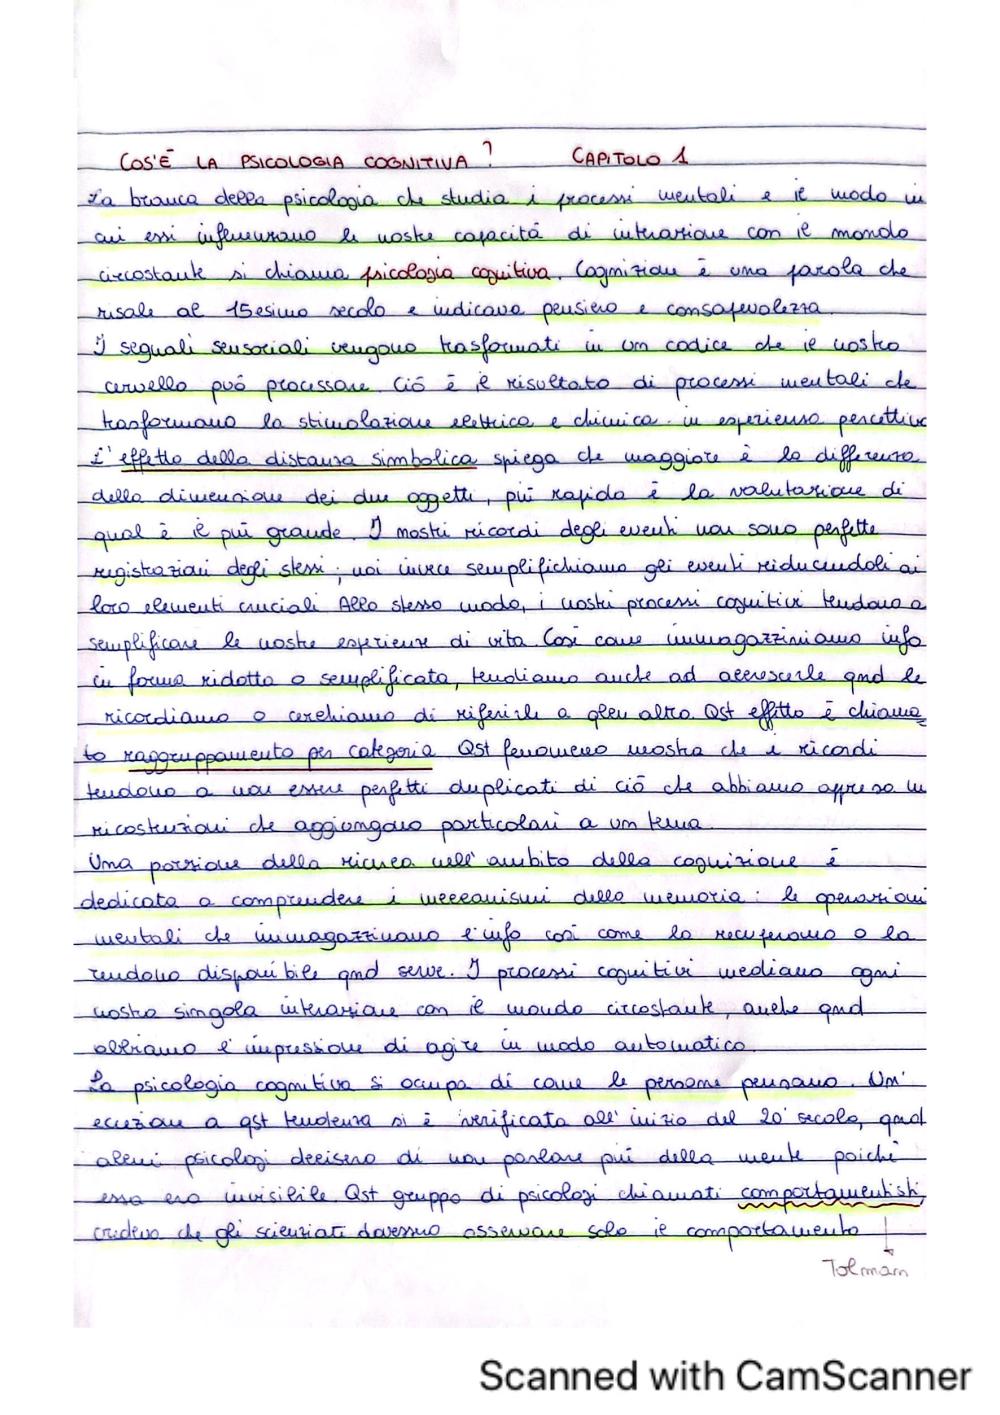 COS'È LA PSICOLOGIA COGNITIVA? CAPITOLO 1
La branca della psicologia che studia i processi mentali e il modo in
cui essi influenzano le nostre capacità di interazione con il mondo
circostante si chiama psicologia cognitiva. Cognizione è una parola che
risale al 15esimo secolo e indicava pensiero e consapevolezza.
I segnali sensoriali vengono trasformati in un codice che il nostro
cervello può processare. Ciò è il risultato di processi mentali che
trasformano la stimolazione elettrica e chimica in esperienza percettiva
L'effetto della distanza simbolica spiega che maggiore è la differenza
della dimensione dei due oggetti, più rapida è la valutazione di
qual è il più grande. I nostri ricordi degli eventi non sono perfette
registrazioni degli stessi; noi invece semplifichiamo gli eventi riducendoli ai
loro elementi cruciali Allo stesso modo, i nostri processi cognitivi tendono a
semplificare le nostre esperienze di vita. Così come immagazziniamo info
in forma ridotta o semplificata, tendiamo anche ad accrescerle qnd le
ricordiamo o cerchiamo di riferirle a qlcn altro. Qst effetto è chiama
to raggruppamento per categoria Qst fenomeno mostra che i ricordi
tendono a non essere perfetti duplicati di ciò che abbiamo appreso ma
ricostruzioni che aggiungono particolari a un tema.
Una porzione della ricerca nell'ambito della cognizione è
dedicata a comprendere i meccanismi della memoria: le operazioni
mentali che immagazzinano l'info così come la recuperano o la
rendono disponibile qnd serve. I processi cognitivi mediano ogni
nostra singola interazione con il mondo circostante, anche qnd
abbiamo l'impressione di agire in modo automatico.
La psicologia cognitiva si occupa di come le persone pensano. Un'
eccezione a qst tendenza si è verificata all'inizio del 20° secolo, qnd
alcuni psicologi decisero di non parlare più della mente poiché
essa era invisibile. Qst gruppo di psicologi chiamati comportamentisti,
credeva che gli scienziati dovessero osservare solo il comportamento
Tolman
Scanned with CamScanner